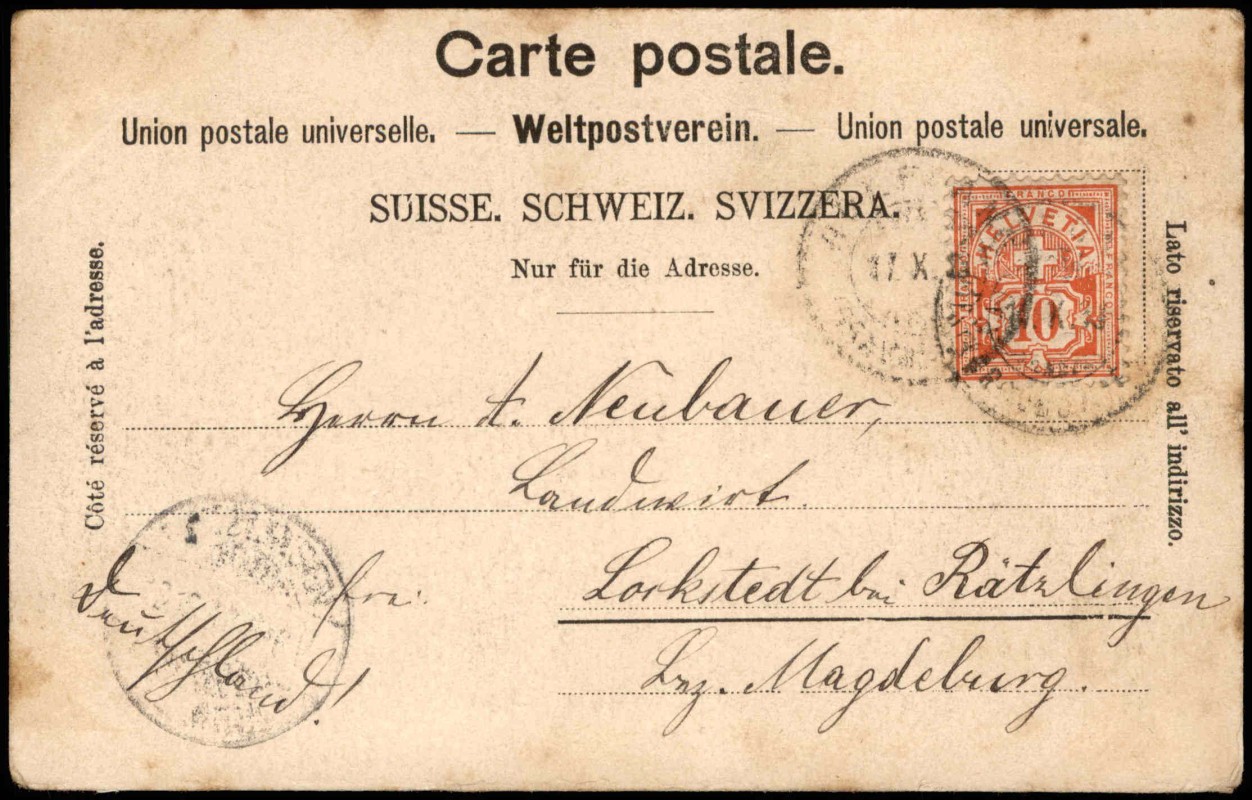 Carte postale.
Union postale universelle. — Weltpostverein. — Union postale universale.
SUISSE. SCHWEIZ. SVIZZERA.
Nur für die Adresse.
Côté réservé à l'adresse.
Lato riservato all' indirizzo.
FRANCO
HELVETIA
FRANCO
10
17. X.
Herrn A. Neubauer,
Landwirt
frei.
Lockstedt bei Rätzlingen
Bez. Magdeburg.
Deutschland!